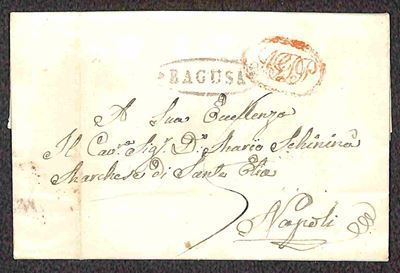 RAGUSA
A Sua Eccellenza
Il Cav.re Sig.r D.n Mario Schininà
Marchese di Santa Elia
Napoli